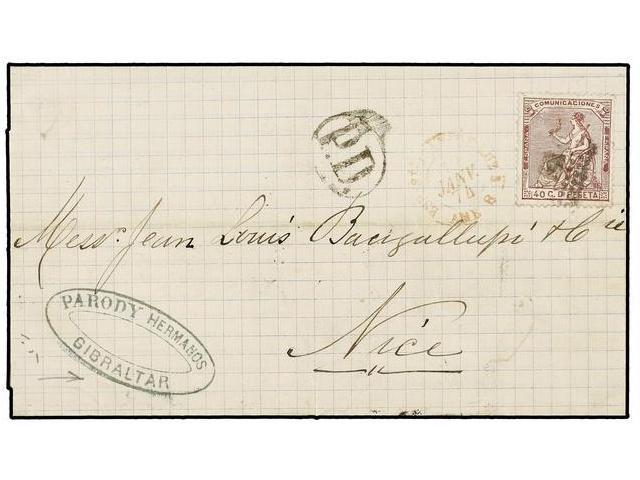 COMUNICACIONES
40 C. D PESETA
P.D.
JANV.
74
Messrs. Jean Louis Bacigallupi & Cie
PARODY HERMANOS
GIBRALTAR
Nice